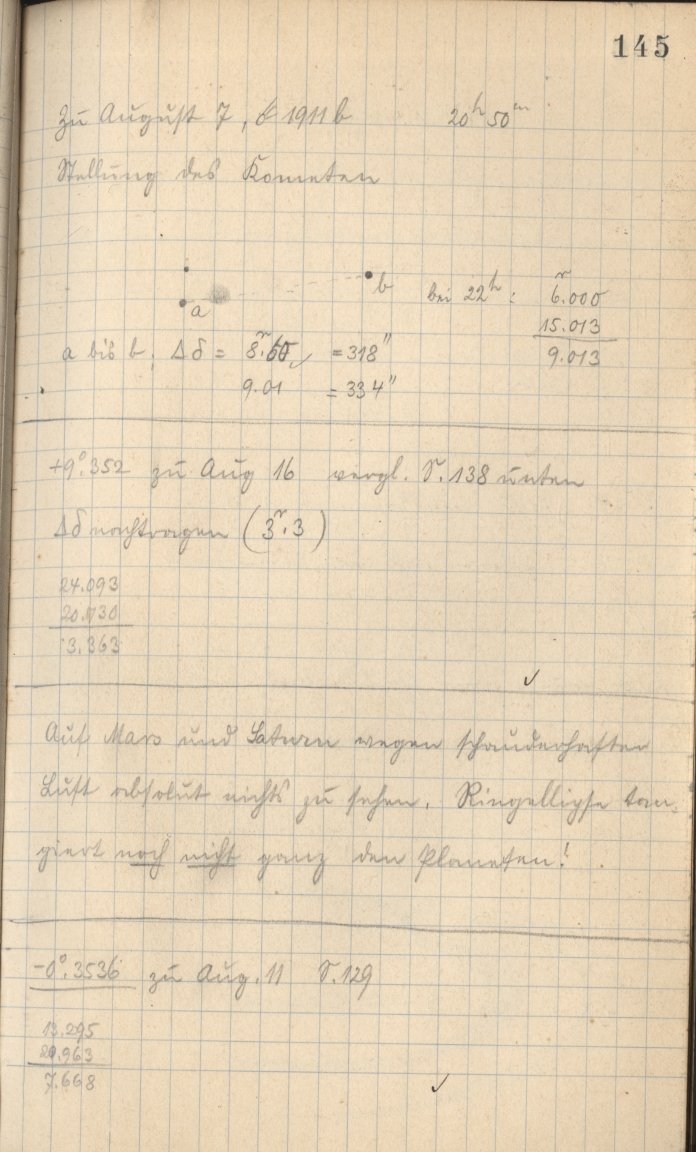 145
Zu August 7, ☄ 1911 b 20ʰ 50ᵐ
Stellung des Kometen
b
a
bei 22ʰ: 6ʳ.000
15.013
9.013
a bis b: Δδ = 8ʳ.60 ✓ = 318"
9.01 = 334"
+9°.352 zu Aug 16 vergl. S. 138 unten
Δδ nachtragen (3ʳ.3)
24.093
20.730
3.363
✓
Auf Mars und Saturn wegen schauderhafter
Luft absolut nichts zu sehen. Ringellipse tan-
giert noch nicht ganz den Planeten!
-0°.3536 zu Aug. 11 S. 129
13.295
20.963
7.668
✓